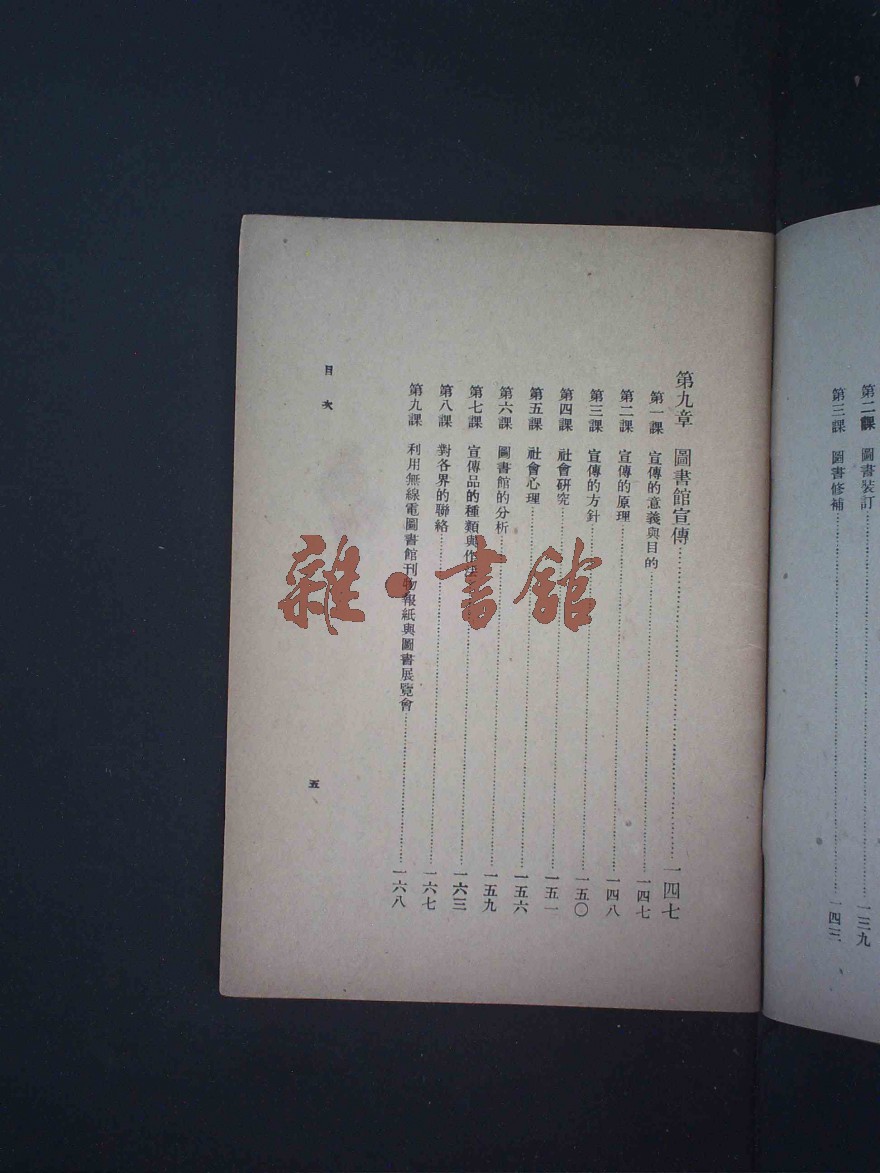 第二課　圖書裝訂……一三九
第三課　圖書修補……一四三
第九章　圖書館宣傳……一四七
第一課　宣傳的意義與目的……一四七
第二課　宣傳的原理……一四八
第三課　宣傳的方針……一五〇
第四課　社會研究……一五一
第五課　社會心理……一五六
第六課　圖書館的分析……一五九
第七課　宣傳品的種類與作法……一六三
第八課　對各界的聯絡……一六七
第九課　利用無線電圖書館刊物報紙與圖書展覽會……一六八
目次
五
雜·書館